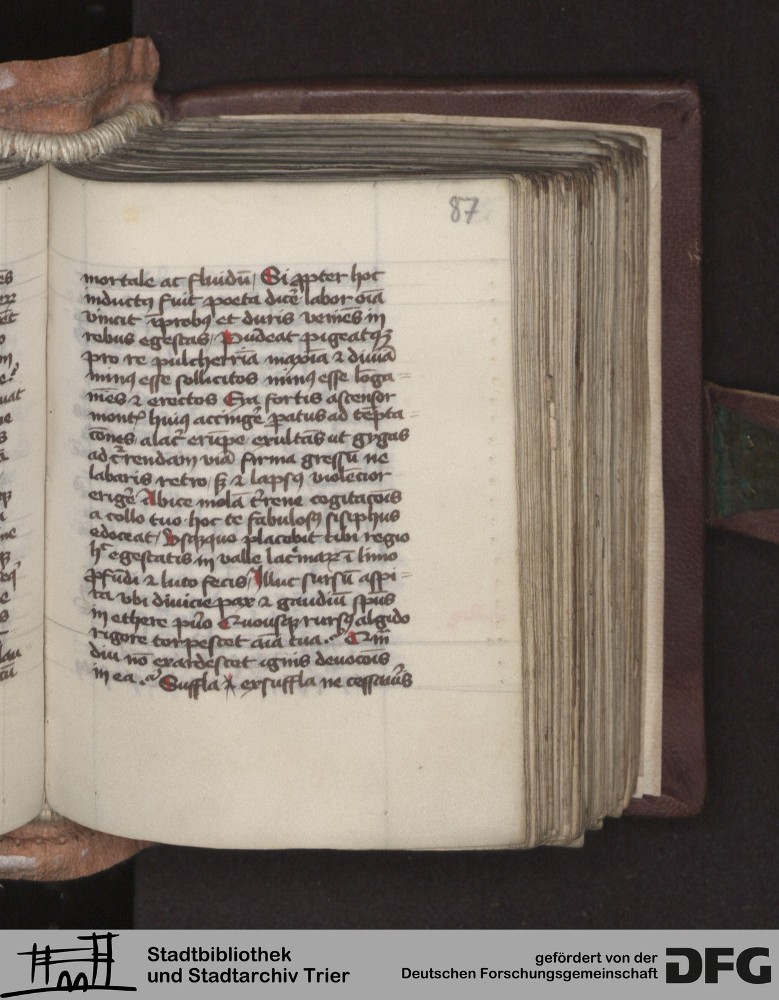 87
mortale ac fluidū / Si ꝓpter hoc
inductꝯ fuit poeta dicē labor oīa
vincit īprobꝯ et duris veniēs in
rebus egestas / Pudeat pigeatqꝫ
pro re pulcherria maxīa ⁊ diuīa
minꝯ esse sollicitos minꝯ esse lōga=
mēs ⁊ erectos Eya fortis ascensor
huiꝯ accingē ꝑatus ad tēpta=
cōnes alac̄ erūpe exultās ut gygas
ad viā firma gressū ne
labaris retro / ⁊ lapsꝯ violēcior
erigē Abice molā t̄rene cogitacōis
a collo tuo hoc te fabulosꝯ sisiphus
edoceat / Vsqꝫquo placebit tibi regio
h̄ egestatis in valle ī limo
ꝓfūdi ⁊ luto fecis / Illuc sursū aspi=
ra vbi diuicie pax ⁊ gaudiū spūs
in ethere Quousqꝫ rursꝯ algido
rigore torpescet aīa tua .
diu nō exardescet ignis deuocōis
in ea . Suffla exsuffla ne
Stadtbibliothek
und Stadtarchiv Trier
gefördert von der
Deutschen Forschungsgemeinschaft
DFG